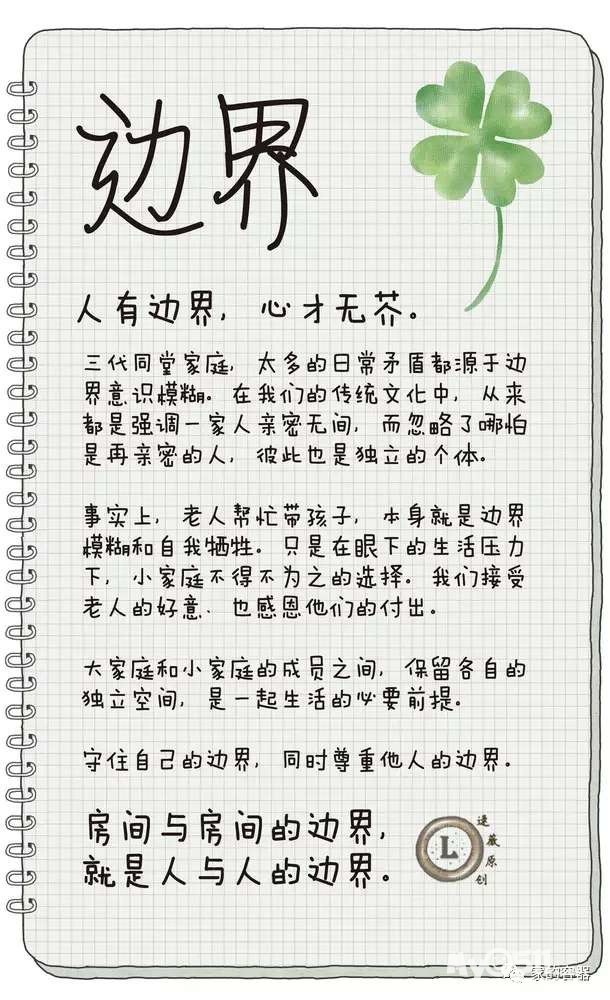 边界
人有边界，心才无芥。
三代同堂家庭，太多的日常矛盾都源于边
界意识模糊。在我们的传统文化中，从来
都是强调一家人亲密无间，而忽略了哪怕
是再亲密的人，彼此也是独立的个体。
事实上，老人帮忙带孩子，本身就是边界
模糊和自我牺牲。只是在眼下的生活压力
下，小家庭不得不为之的选择。我们接受
老人的好意、也感恩他们的付出。
大家庭和小家庭的成员之间，保留各自的
独立空间，是一起生活的必要前提。
守住自己的边界，同时尊重他人的边界。
房间与房间的边界，
就是人与人的边界。
L
速薇原创
家的容器